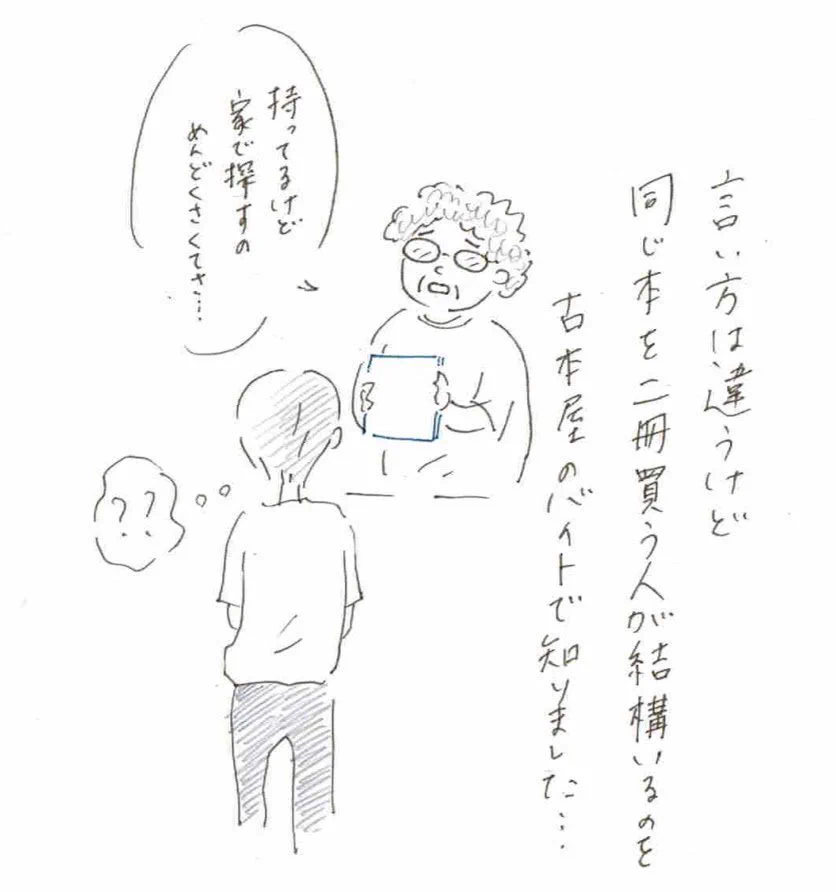 言い方は違うけど
同じ本を二冊買う人が結構いるのを
古本屋のバイトで知りました…
持ってるけど
家で探すの
めんどくさくてさ…
??